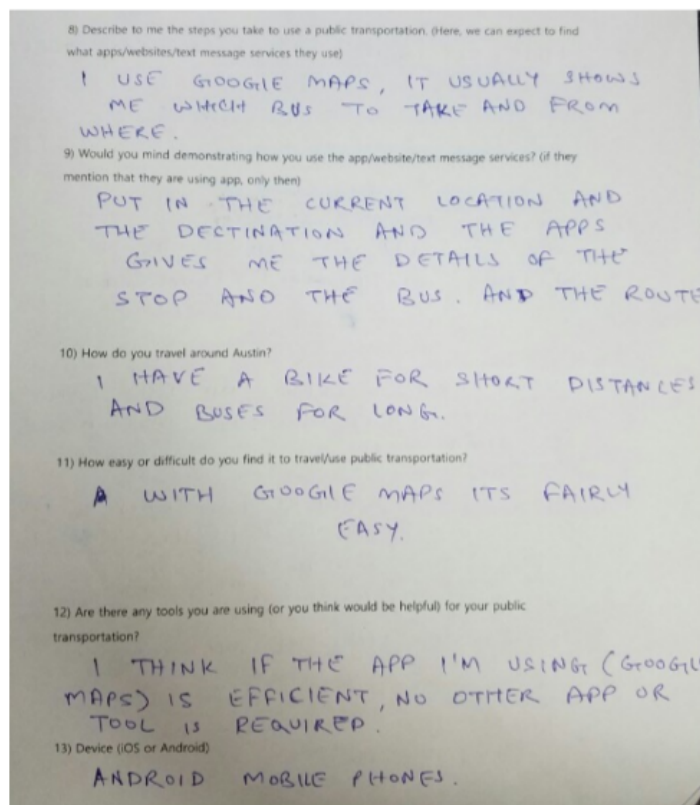 8) Describe to me the steps you take to use a public transportation. (Here, we can expect to find
what apps/websites/text message services they use)
I USE GOOGLE MAPS, IT USUALLY SHOWS
ME WHICH BUS TO TAKE AND FROM
WHERE.
9) Would you mind demonstrating how you use the app/website/text message services? (if they
mention that they are using app, only then)
PUT IN THE CURRENT LOCATION AND
THE DECTINATION AND THE APPS
GIVES ME THE DETAILS OF THE
STOP AND THE BUS. AND THE ROUTE
10) How do you travel around Austin?
I HAVE A BIKE FOR SHORT DISTANCES
AND BUSES FOR LONG.
11) How easy or difficult do you find it to travel/use public transportation?
A WITH GOOGLE MAPS ITS FAIRLY
EASY.
12) Are there any tools you are using (or you think would be helpful) for your public
transportation?
I THINK IF THE APP I'M USING (GOOGL
MAPS) IS EFFICIENT, NO OTHER APP OR
TOOL IS REQUIRED.
13) Device (iOS or Android)
ANDROID MOBILE PHONES.